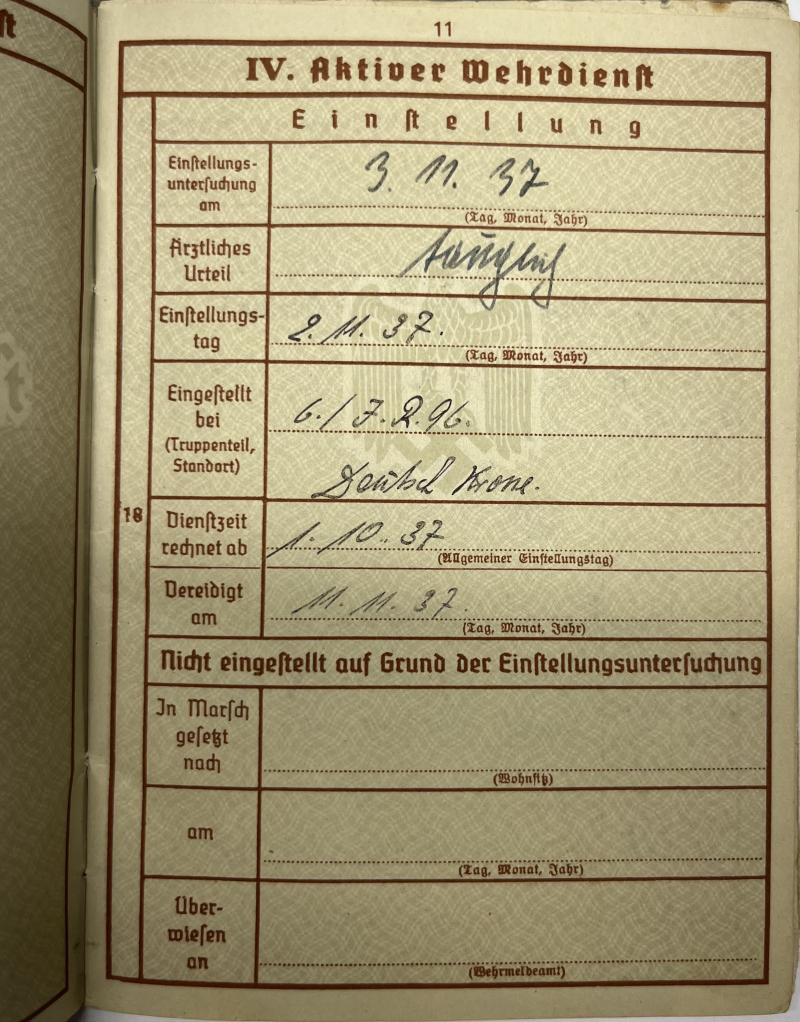 11
IV. Aktiver Wehrdienst
Einstellung
Einstellungs-
untersuchung
am
3. 11. 37
(Tag, Monat, Jahr)
Ärztliches
Urteil
tauglich
Einstellungs-
tag
2. 11. 37.
(Tag, Monat, Jahr)
Eingestellt
bei
(Truppenteil,
Standort)
6./J.R.96.
Deutsch Krone.
18
Dienstzeit
rechnet ab
1. 10. 37
(Allgemeiner Einstellungstag)
Vereidigt
am
11. 11. 37.
(Tag, Monat, Jahr)
Nicht eingestellt auf Grund der Einstellungsuntersuchung
In Marsch
gesetzt
nach
(Wohnsitz)
am
(Tag, Monat, Jahr)
Über-
wiesen
an
(Wehrmeldeamt)